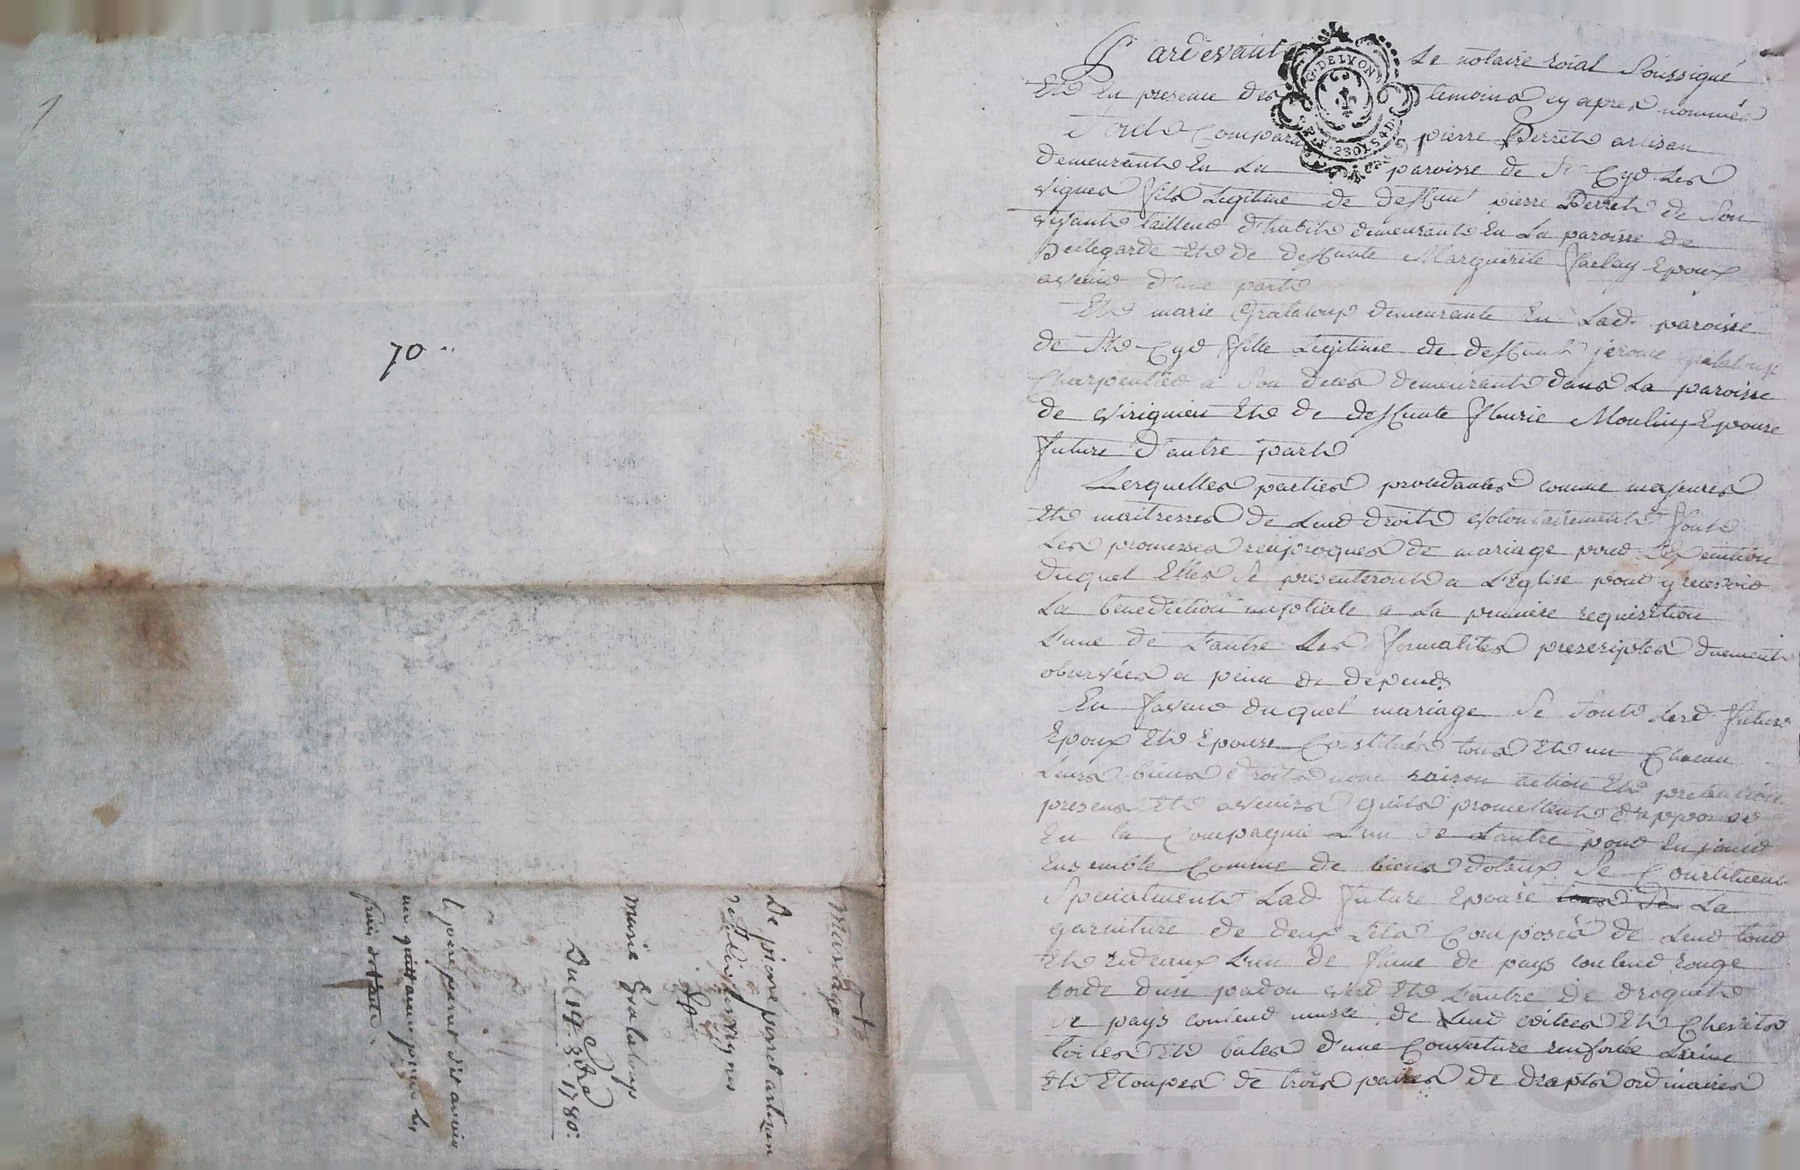 70
Mariage
De pierre perret artisan
de St Cyr les vignes
&
marie Grataloup
Du 19 8bre 1780
le père
frais
Pardevant Le notaire roial Soussigné
Et En presence des temoins cy apres nommés
Sont Comparus pierre Perret artisan
Demeurant En La paroisse de St Cyr Les
vignes fils Legitime de deffunt pierre Perret de Son
vivant tailleur d'habit demeurant En La paroisse de
Bellegarde Et de deffunte Marguerite Epoux
avenir d'une part
Et marie Grataloup demeurante En Lad. paroisse
de St Cyr fille Legitime de deffunt jerome grataloup
Charpentier a Son deces demeurant dans La paroisse
de virignieu Et de deffunte fleurie Moulin Epouse
future d'autre part
Lesquelles parties procedantes comme majeures
Et maitresses de Leur droit volontairement font
Les promesses reciproques de mariage pour
duquel Elles Se presenteront a L'Eglise pour y recevoir
La benediction nuptiale a La premiere requisition
L'une de L'autre Les formalites prescriptes duement
observées a peine de depend
En faveur duquel mariage Se Sont Lesd. future
Epoux Et Epouse Constitués tous Et un Chacun
Leurs biens droits nom raison action Et pretentions
presens Et avenirs quils promettent d'apporter
En la Compagnie L'un de L'autre pour En jouir
Ensemble Comme de biens dotaux Se Constituent
Specialment Lad future Epouse tous de La
garniture de deux Lits Composés de Leur tour
Et rideaux L'un de de pays couleur rouge
bordé d'un padou verd Et L'autre de droguet
de pays couleur musée de Leur coitres Et Chevets
toiles Et bales d'une Couverture
Et Etoupes de trois paires de drapts ordinaires
G. DE LYON